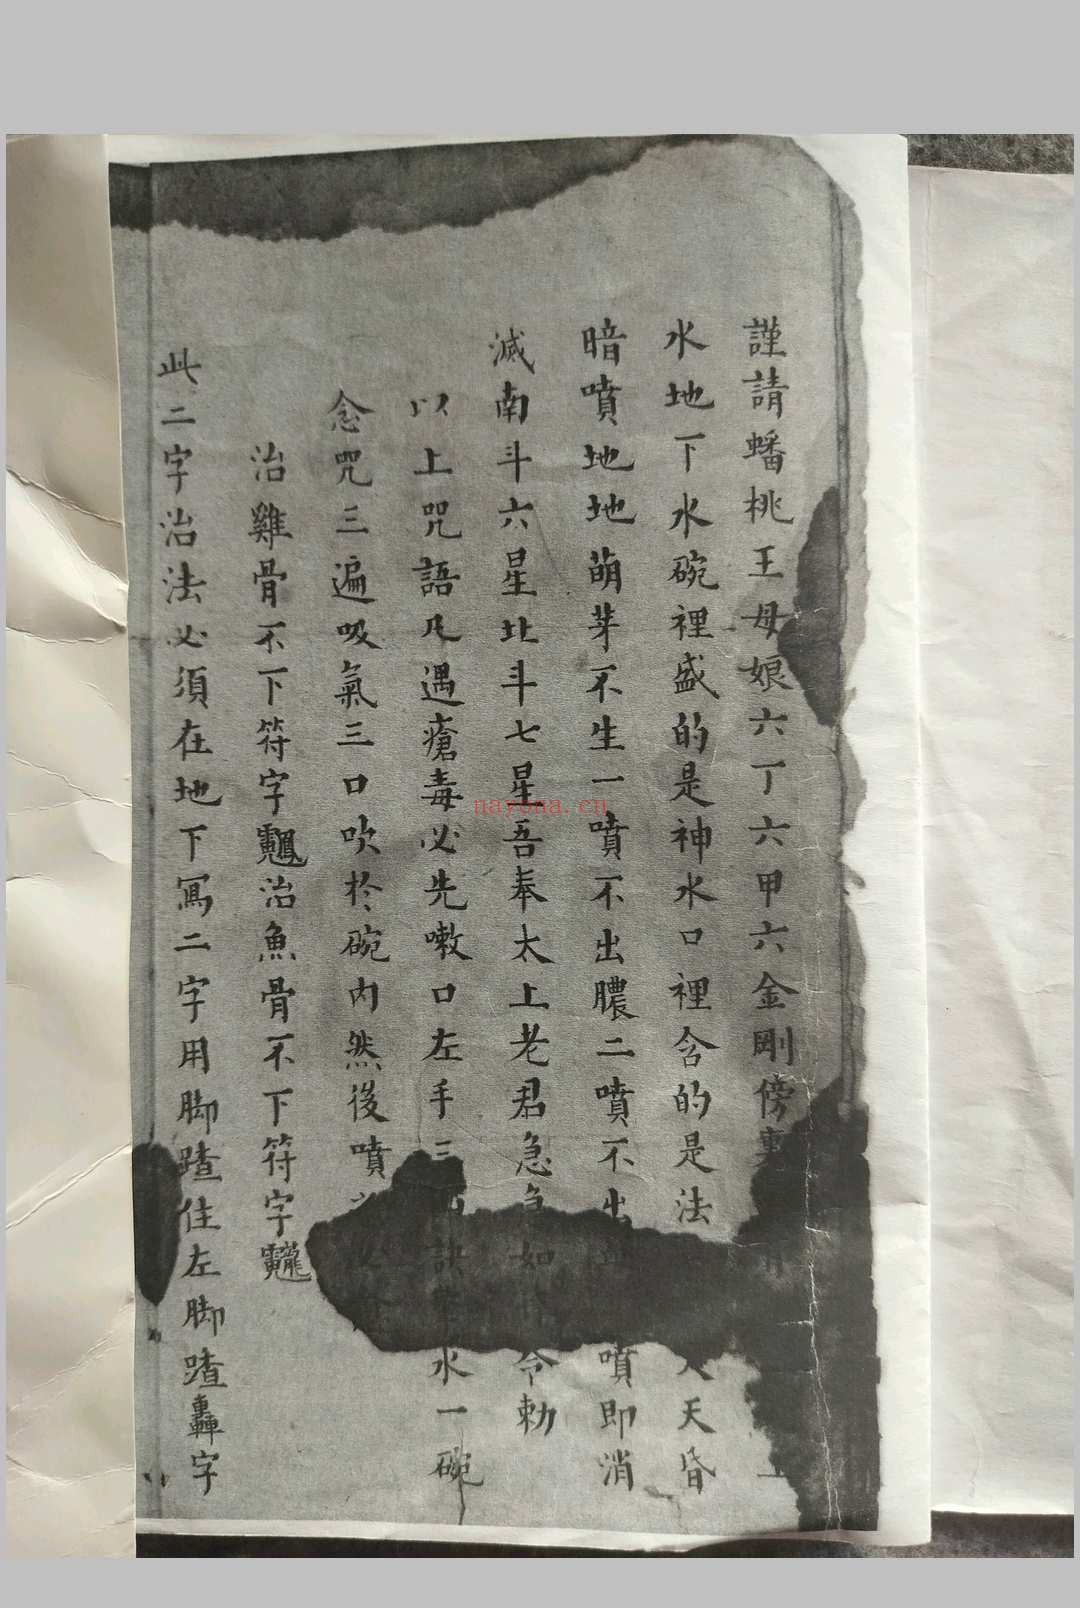 謹請蟠桃王母娘六丁六甲六金剛傍
水地下水碗裡盛的是神水口裡含的是法天昏
暗噴地地萌芽不生一噴不出膿二噴不出噴即消
滅南斗六星北斗七星吾奉太上老君急急如令勅
以上咒語凡遇瘡毒必先嗽口左手三訣水一碗
念咒三遍吸氣三口吹於碗內然後噴
治雞骨不下符字治魚骨不下符字
此二字治法必須在地下寫二字用脚蹅住左脚蹅轟字
nayona.cn